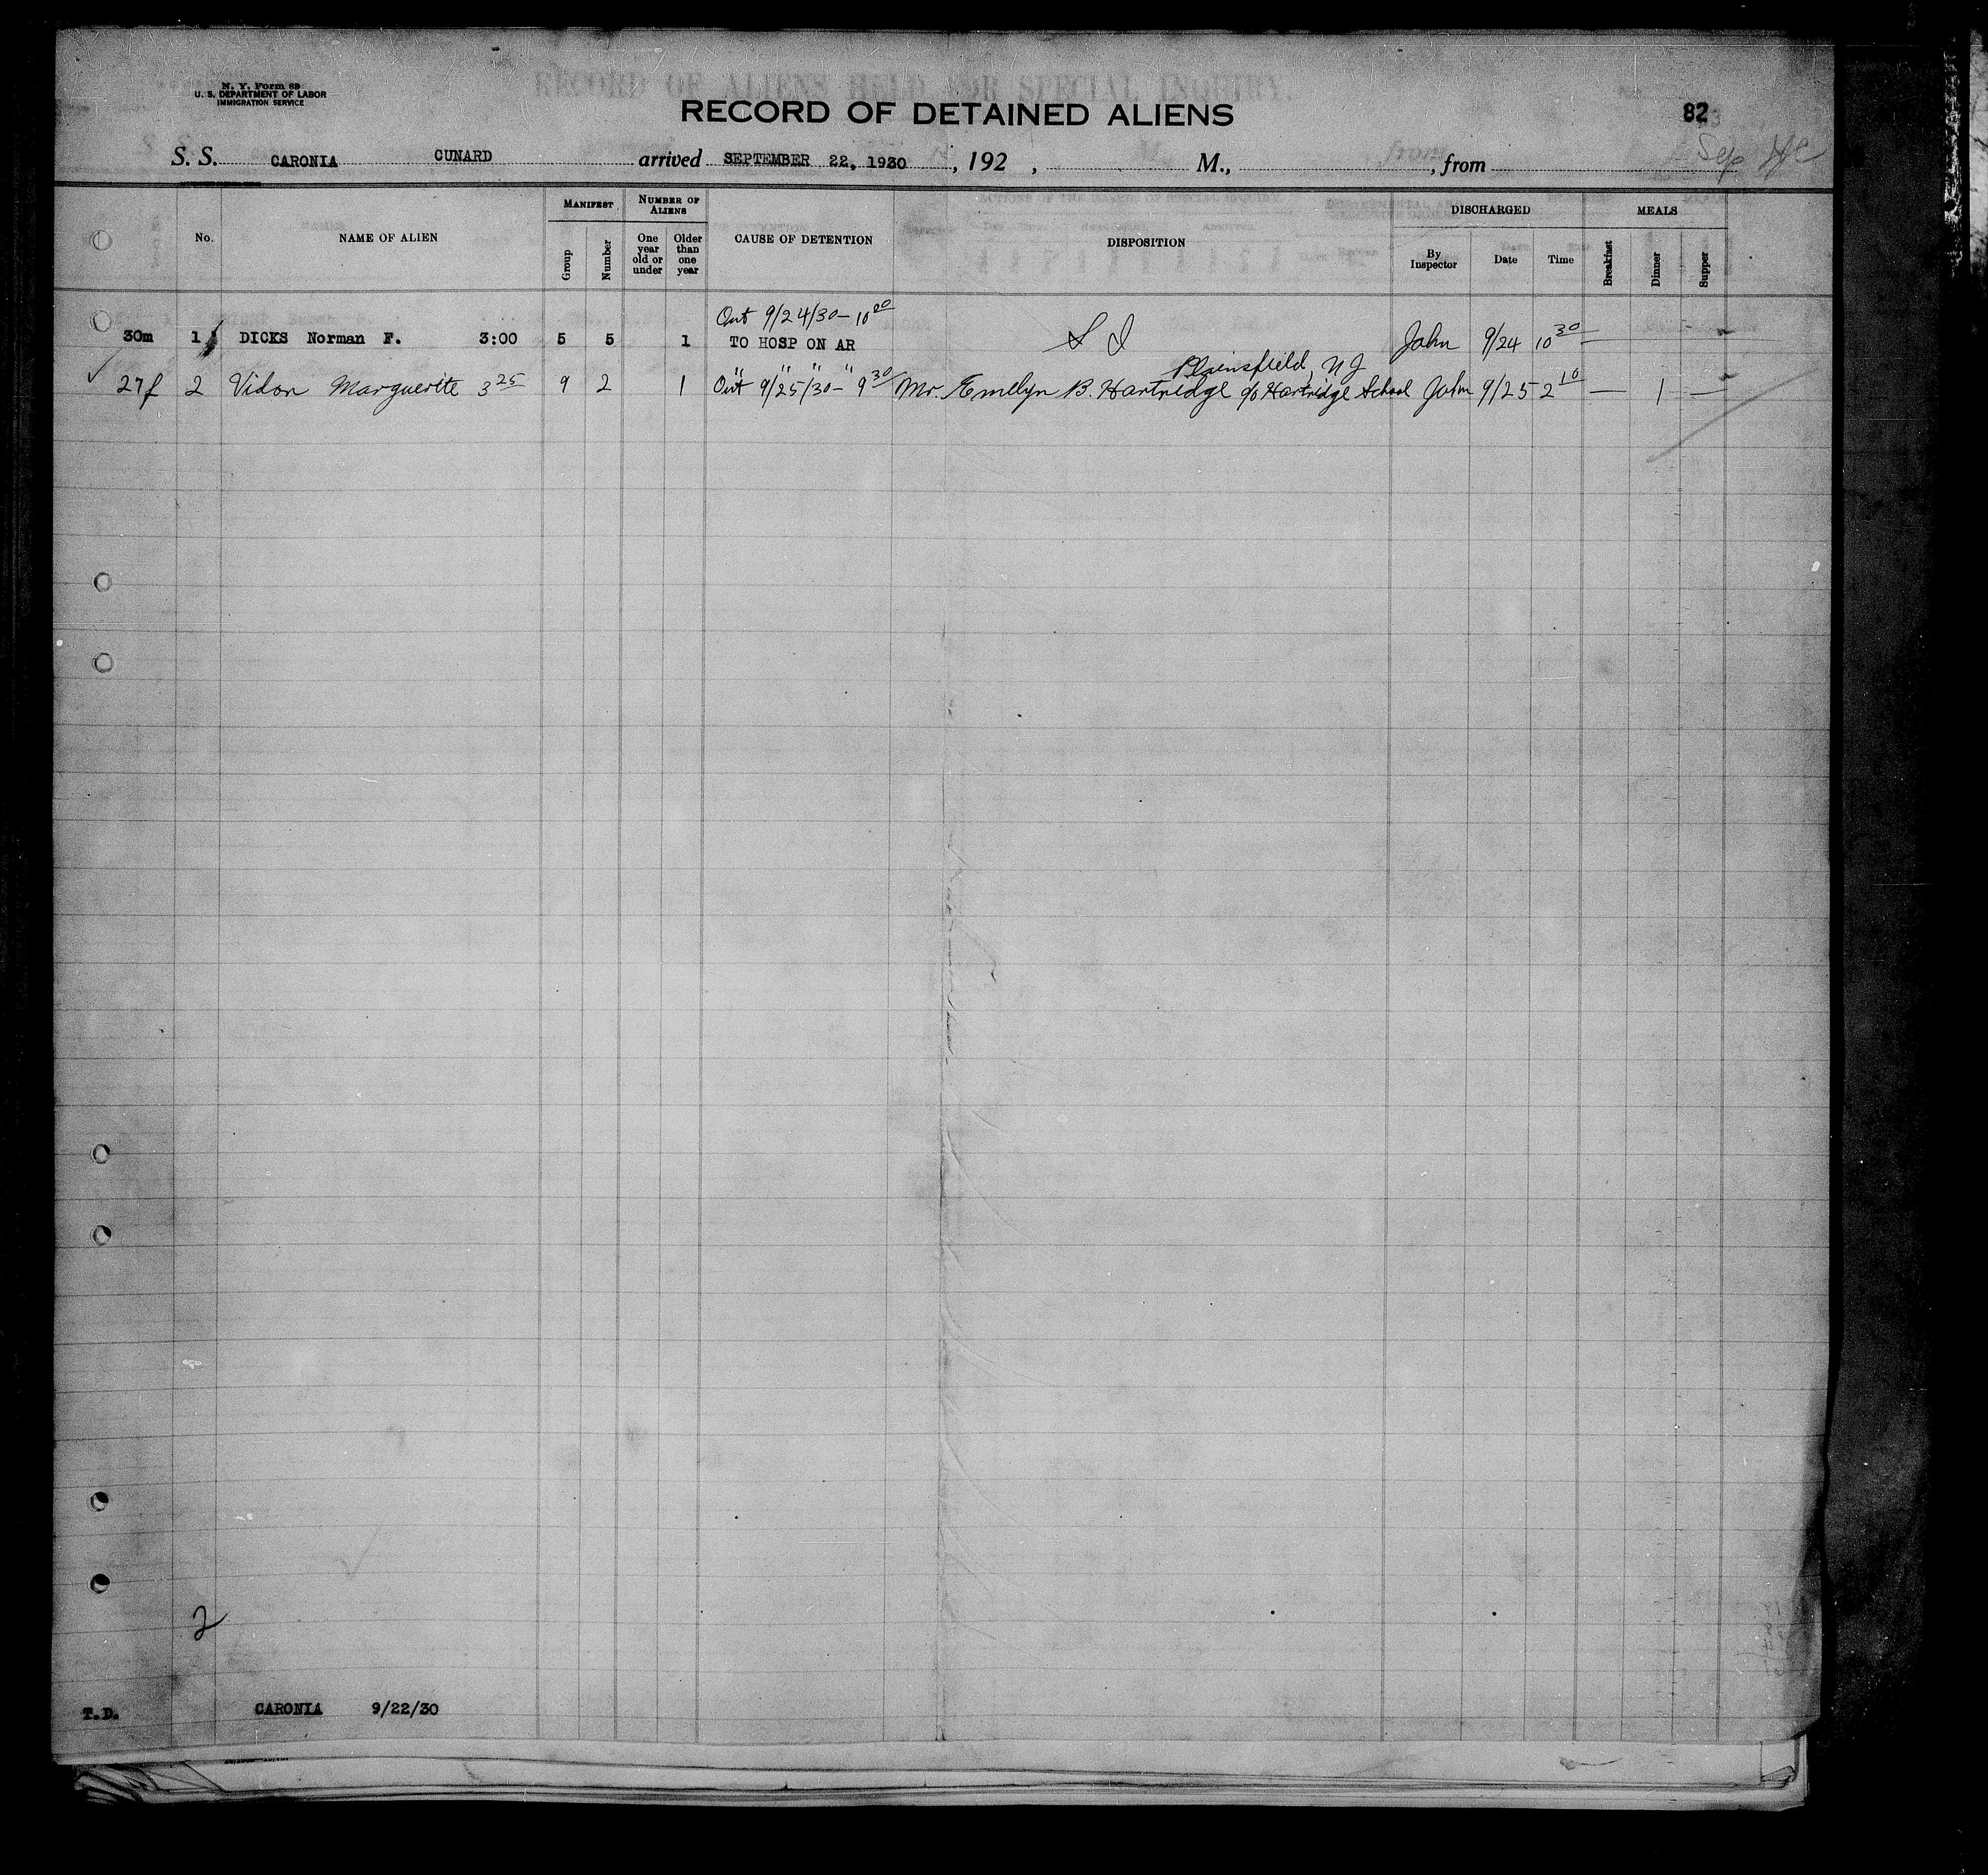 N. Y. Form 89
U. S. DEPARTMENT OF LABOR
IMMIGRATION SERVICE
RECORD OF ALIENS HELD FOR SPECIAL INQUIRY.
RECORD OF DETAINED ALIENS
82
S. S. CARONIA CUNARD arrived SEPTEMBER 22, 1930, 192 , M., , from
No. NAME OF ALIEN MANIFEST Group Number NUMBER OF ALIENS One year old or under Older than one year CAUSE OF DETENTION DISPOSITION DISCHARGED By Inspector Date Time MEALS Breakfast Dinner Supper
Out 9/24/30 - 10 20
30m 1 DICKS Norman F. 3:00 5 5 1 TO HOSP ON AR S I John 9/24 10 30 —
" " " " Plainsfield, N J
27f 2 Vidon Marguerite 3 25 9 2 1 Out 9/25/30 - 9 30 Mr. Emelyn B. Hartridge c/o Hartridge School John 9/25 2 10 — 1 —
2
T.D. CARONIA 9/22/30